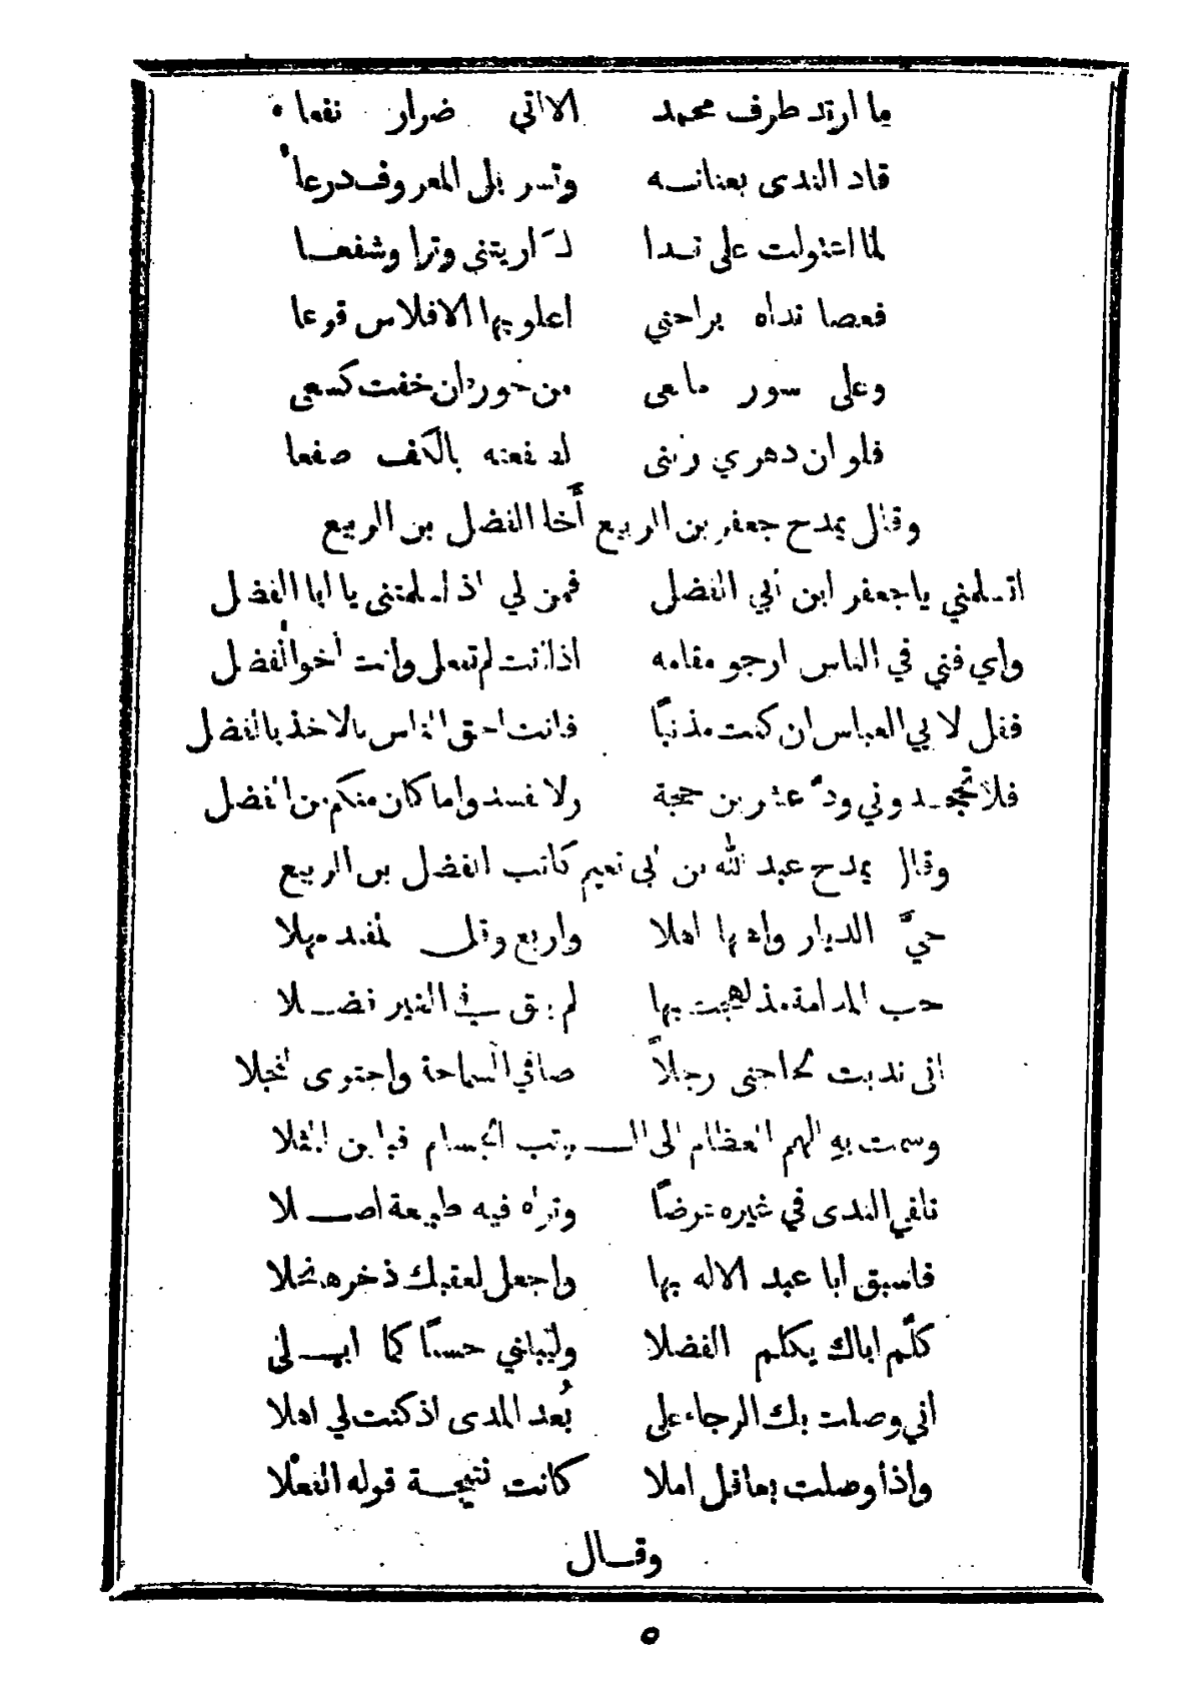 ما ارتد طرف محمد الا اتى ضرار نفعا
قاد الندى بعنانه وتسربل المعروف درعا
لما اعتولت على نداه وترا وشفعا
فعصا نداه براحتي اعلو بها الافلاس قرعا
وعلى سور مانعي من ان خفت كسعى
فلو ان دهري رنى لصفعته بالكف صفعا
وقال يمدح جعفر بن الربيع أخا الفضل بن الربيع
اتسلمني ياجعفر ابن ابي الفضل فمن لي اذ اسلمتني يا ابا الفضل
واي فتي في الناس ارجو مقامه اذا انت لم تفعل وانت اخو الفضل
فقل لابي العباس ان كنت مذنباً فانت احق الناس بالاخذ بالفضل
فلا تجحدوني ودّ عشرين حجة ولا تفسدوا ما كان منكم من الفضل
وقال يمدح عبد الله بن ابي نعيم كاتب الفضل بن الربيع
حيّ الديار واهلها اهلا واربع وقل لمفند مهلا
حب المدامة مذ لهجت بها لم يبق في الغير فضلا
اني ندبت لحاجتي رجلاً صافي السماحة واجتوى البخلا
وسمت به الهمم العظام الى الرتب الجسام فبا ين المثلا
تلقي الندى في غيره عرضاً وتراه فيه طبيعة اصلا
فاسبق ابا عبد الاله بها واجعل لعقبك ذخرها نحلا
كلّم اباك يكلم الفضلا وليبلني حسناً كما ابلى
اني وصلت بك الرجاء على بُعد المدى اذ كنت لي اهلا
واذا وصلت بعاقل املا كانت نتيجة قوله الفعلا
وقال
٥